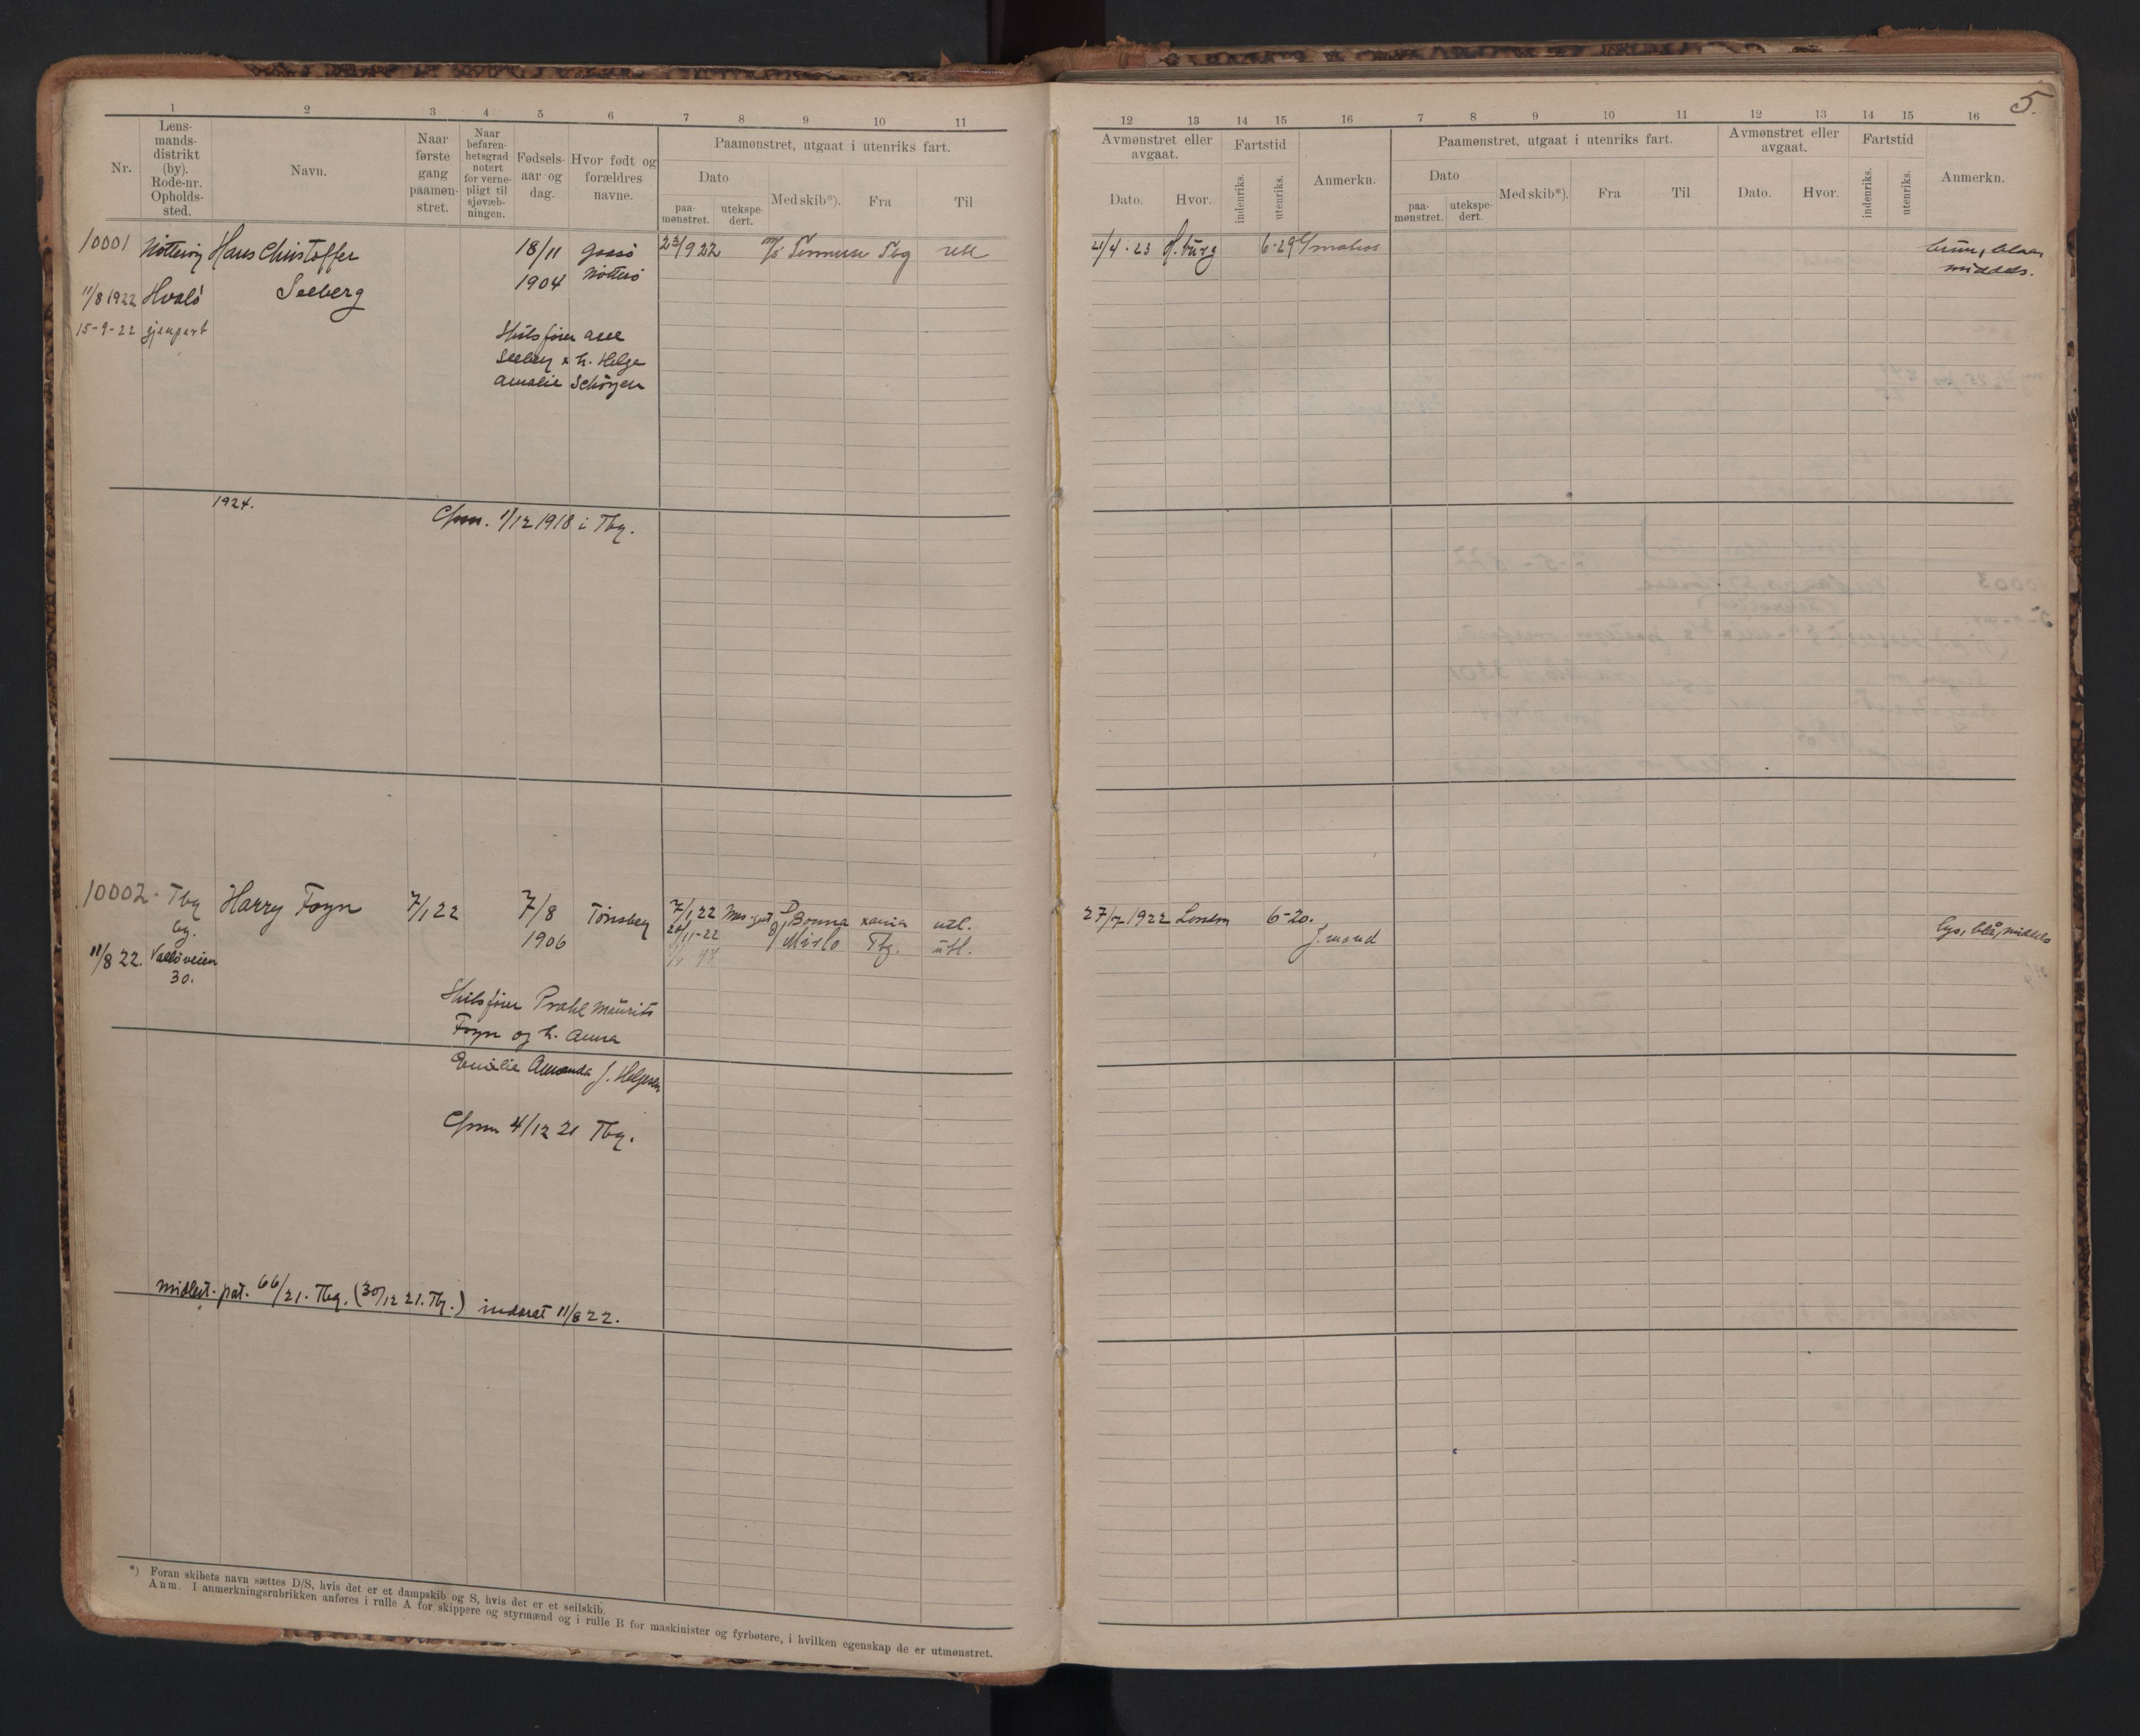 5.
1 2 3 4 5 6 7 8 9 10 11
Nr.
Lens-
mands-
distrikt
(by).
Rode-nr.
Opholds-
sted.
Navn.
Naar
første
gang
paamøn-
stret.
Naar
befaren-
hetsgrad
notert
for verne-
pligt til
sjøvæb-
ningen.
Fødsels-
aar og
dag.
Hvor født og
forældres
navne.
Paamønstret, utgaat i utenriks fart.
Dato
paa-
mønstret.
utekspe-
dert.
Med skib*).
Fra
Til
12 13 14 15 16 7 8 9 10 11 12 13 14 15 16
Avmønstret eller
avgaat.
Dato.
Hvor.
Fartstid
indenriks.
utenriks.
Anmerkn.
Paamønstret, utgaat i utenriks fart.
Dato
paa-
mønstret.
utekspe-
dert.
Med skib*).
Fra
Til
Avmønstret eller
avgaat.
Dato.
Hvor.
Fartstid
indenriks.
utenriks.
Anmerkn.
10001 Nøtterøy Hans Christoffer 18/11 Gaasø 23/9 22 Tbg
1904 Nøtterø
11/8 1922 Hvalø Seeberg
15-9-22 gjenpart
21/4 . 23 H.burg 6-29
brun, blaa,
middels.
Skibsfører
Seeberg h. Helga
Amalie
1924.
1/12 1918 i Tbg.
10002. Tbg Harry Foyn 7/1 22 7/8 Tønsberg 7/1 22 Mes.gut D/ Bonna xania utl.
by. 1906 11-22 Mirlo Tbg. utl.
11/8 22. Valløveien
30.
27/7 1922 London 6-20.
lys, blå, middels
Skibsfører Prahl Maurits
Foyn og h. Anna
Emilie Amanda f. Helgesen
4/12 21 Tbg.
midlert. pat. 66/21. Tbg. (30/12 21. Tbg.) inddrat 11/8 22.
*) Foran skibets navn sættes D/S, hvis det er et dampskib og S, hvis det er et seilskib.
Anm. I anmerkningsrubrikken anføres i rulle A for skippere og styrmænd og i rulle B for maskinister og fyrbøtere, i hvilken egenskap de er utmønstret.